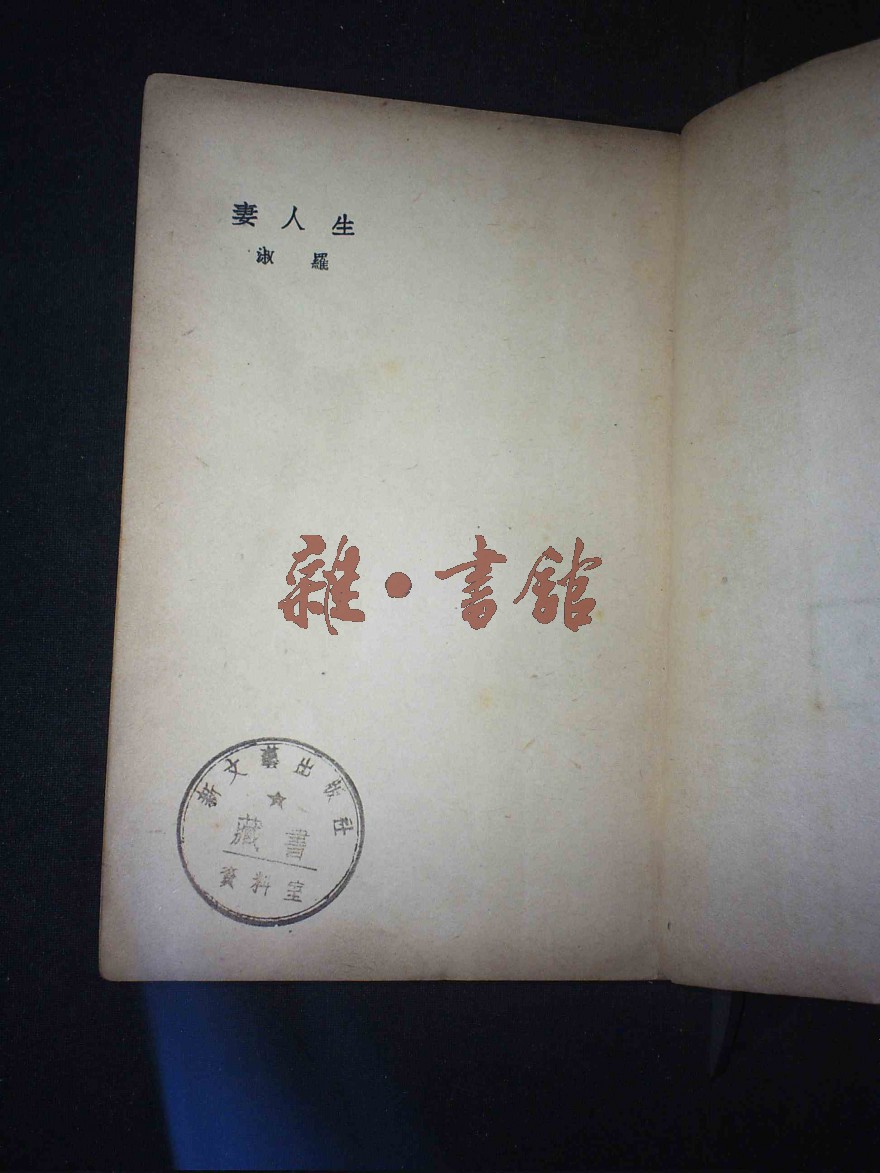 生人妻
羅淑
雜·書館
新文藝出版社
藏書
資料室